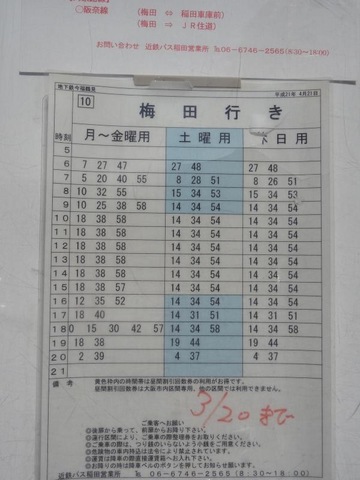 〇阪奈線 （梅田 ⇔ 稲田車庫前）
（梅田 ⇒ ＪＲ住道）
お問い合わせ 近鉄バス稲田営業所 ℡06-6746-2565(8:30～18:00)
地下鉄今福鶴見 平成21年 4月21日
10 梅田行き
時刻 月～金曜用 土曜用 日用
5
6 7 27 47 27 48 27 48
7 5 20 40 55 8 28 51 8 26 51
8 10 32 55 15 34 53 15 34 53
9 10 25 38 58 14 34 54 14 34 54
10 18 38 58 14 34 54 14 34 54
11 18 38 58 14 34 54 14 34 54
12 18 38 58 14 34 54 14 34 54
13 18 38 58 14 34 54 14 34 54
14 18 38 58 14 34 54 14 34 54
15 18 38 58 14 34 54 14 34 54
16 12 35 52 14 34 54 14 34 54
17 18 40 14 31 51 14 31 51
18 0 15 30 42 57 14 34 58 14 34 58
19 18 40 19 44 19 44
20 2 39 4 37 4 37
21
備考 黄色枠内の時間券は昼間割引回数券の利用がお得です。
昼間割引回数券は大阪市内区間専用、他の区間では利用できません。
3/20まで
ご乗客へお願い
◎後扉から乗って、前扉からお降り下さい。
◎運行区間により、ご乗車の際整理券をお取り下さい。
◎ご乗車の際は、つり銭のいらないよう小銭をご用意ください。
◎危険物の車内持込は法令により禁止されています。
◎運賃は降車の際直接運賃箱へお入れ下さい。
◎お降りの時は降車ベルのボタンを押してお知らせ願います。
近鉄バス稲田営業所 ℡06-6746-2565（8:30～18:00）